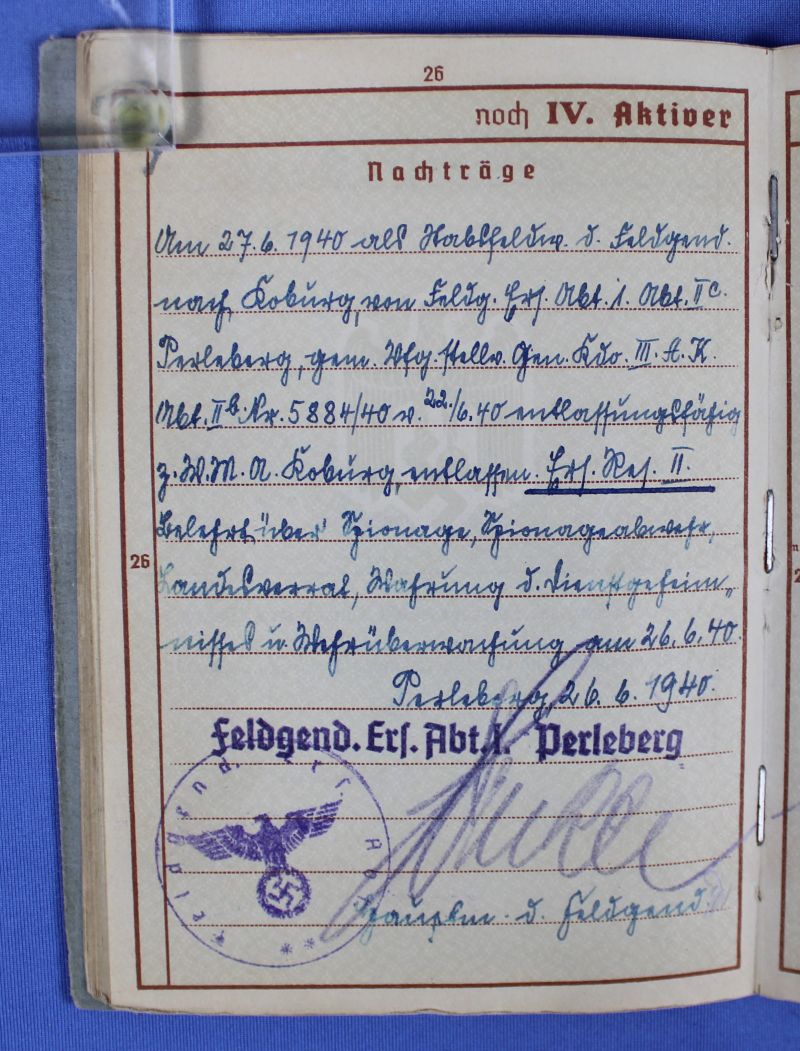 26
noch IV. Aktiver
Nachträge
Am 27.6.1940 als Stabsfeldw. d. Feldgend.
nach Koburg, von Feldg. Ers. Abt. 1. Abt. IIc.
Perleberg, gem. Vfg. stellv. Gen. Kdo. III. A. K.
Abt. IIb. Nr. 5884/40 v. 22./6.40 entlassungsfähig
z. W. M. A. Koburg, entlassen. Ers. Res. II.
Belehrt über Spionage, Spionageabwehr,
26
Landesverrat, Wahrung d. Dienstgeheim„
nisses u. Wehrüberwachung am 26.6.40.
Perleberg, 26.6.1940.
Feldgend. Ers. Abt. 1. Perleberg
Feldgend. Ers. Abt.
Hauptm. d. Feldgend.